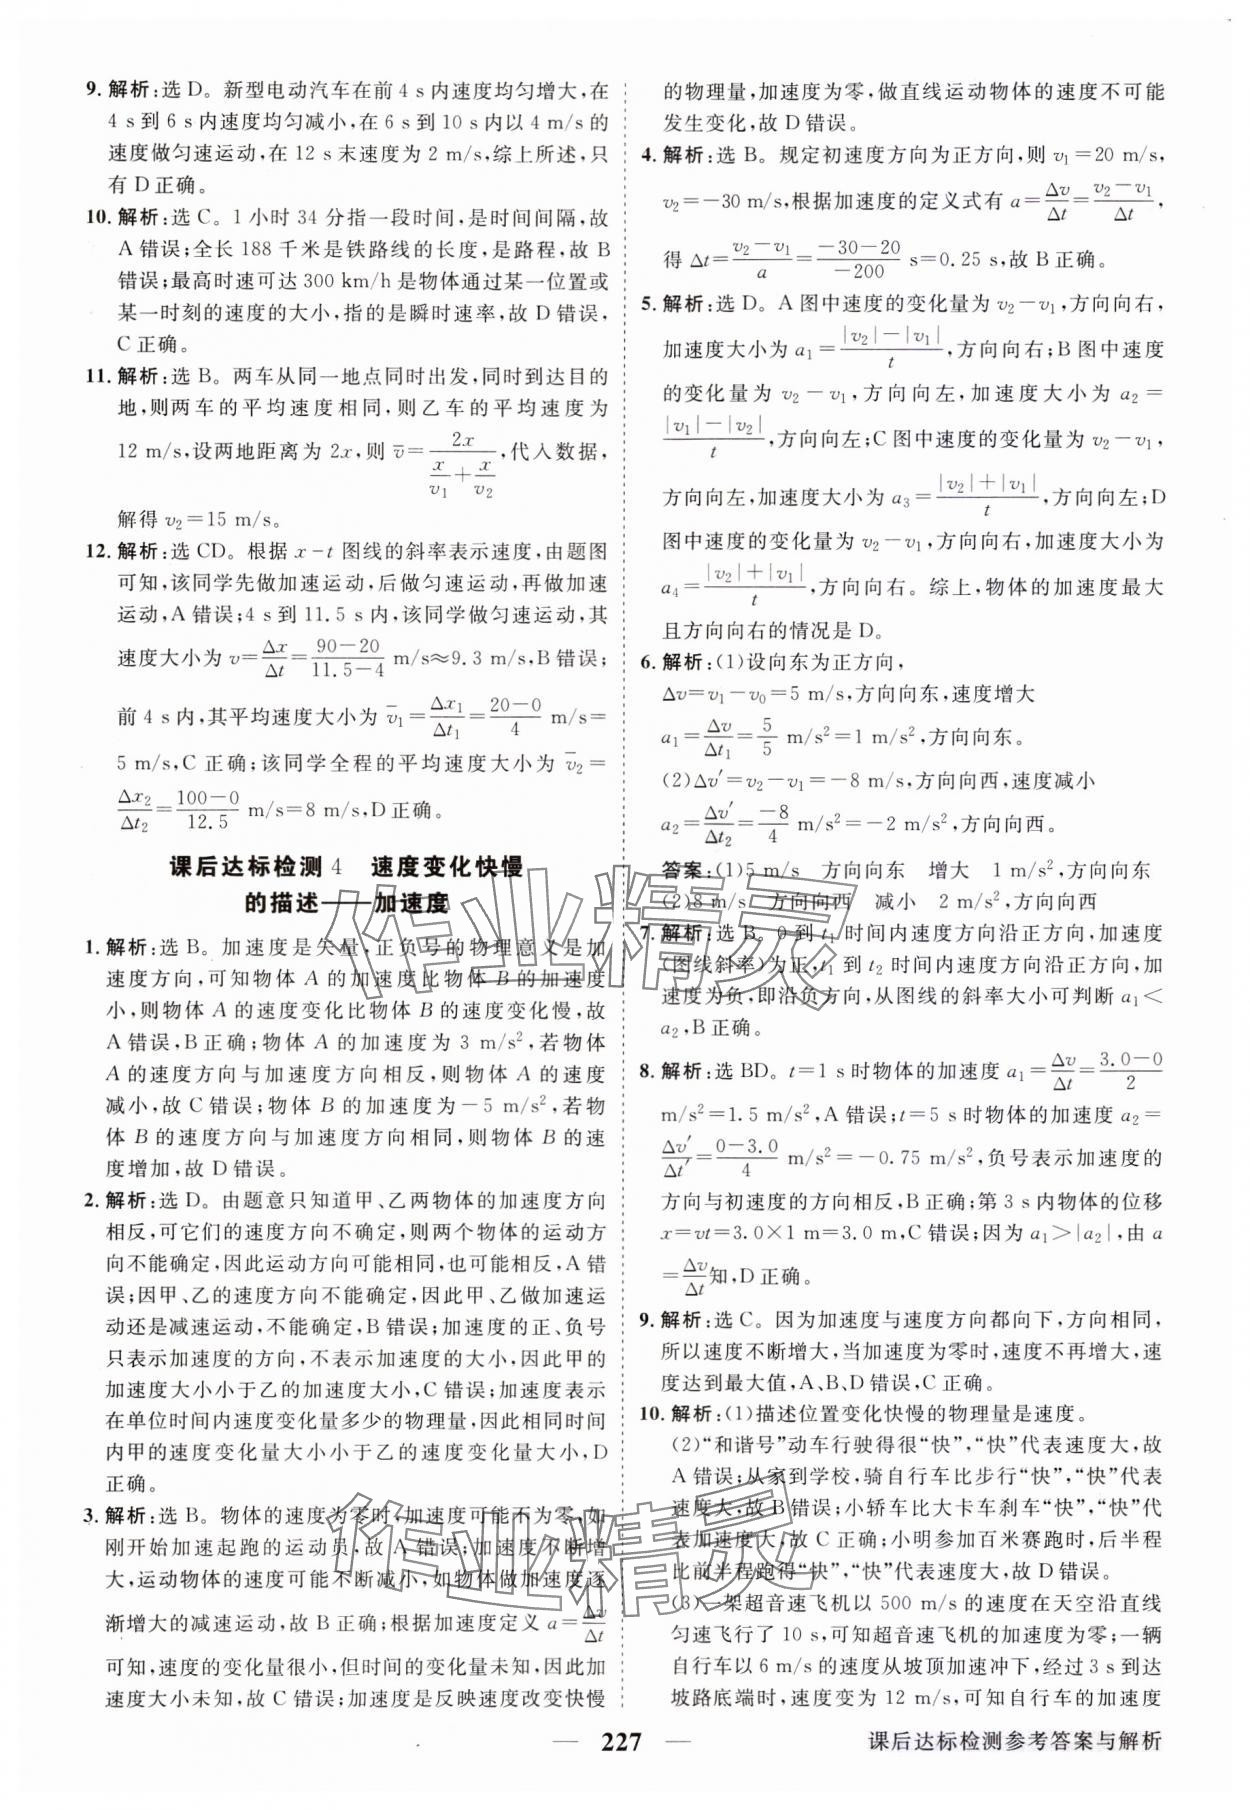 9. 解析:选 D。新型电动汽车在前 4 s 内速度均匀增大,在
4 s 到 6 s 内速度均匀减小,在 6 s 到 10 s 内以 4 m/s 的
速度做匀速运动,在 12 s 末速度为 2 m/s,综上所述,只
有 D 正确。
10. 解析:选 C。1 小时 34 分指一段时间,是时间间隔,故
A 错误;全长 188 千米是铁路线的长度,是路程,故 B
错误;最高时速可达 300 km/h 是物体通过某一位置或
某一时刻的速度的大小,指的是瞬时速率,故 D 错误,
C 正确。
11. 解析:选 B。两车从同一地点同时出发,同时到达目的
地,则两车的平均速度相同,则乙车的平均速度为
12 m/s,设两地距离为 2x,则 v̄=2x/(x/v₁+x/v₂),代入数据,
解得 v₂=15 m/s。
12. 解析:选 CD。根据 x-t 图线的斜率表示速度,由题图
可知,该同学先做加速运动,后做匀速运动,再做加速
运动,A 错误;4 s 到 11.5 s 内,该同学做匀速运动,其
速度大小为 v=Δx/Δt=(90-20)/(11.5-4) m/s≈9.3 m/s,B 错误;
前 4 s 内,其平均速度大小为 v̄₁=Δx₁/Δt₁=(20-0)/4 m/s=
5 m/s,C 正确;该同学全程的平均速度大小为 v̄₂=
Δx₂/Δt₂=(100-0)/12.5 m/s=8 m/s,D 正确。
课后达标检测 4 速度变化快慢
的描述——加速度
1. 解析:选 B。加速度是矢量,正负号的物理意义是加
速度方向,可知物体 A 的加速度比物体 B 的加速度
小,则物体 A 的速度变化比物体 B 的速度变化慢,故
A 错误,B 正确;物体 A 的加速度为 3 m/s²,若物体
A 的速度方向与加速度方向相反,则物体 A 的速度
减小,故 C 错误;物体 B 的加速度为-5 m/s²,若物
体 B 的速度方向与加速度方向相同,则物体 B 的速
度增加,故 D 错误。
2. 解析:选 D。由题意只知道甲、乙两物体的加速度方向
相反,可它们的速度方向不确定,则两个物体的运动方
向不能确定,因此运动方向可能相同,也可能相反,A 错
误;因甲、乙的速度方向不能确定,因此甲、乙做加速运
动还是减速运动,不能确定,B 错误;加速度的正、负号
只表示加速度的方向,不表示加速度的大小,因此甲的
加速度大小小于乙的加速度大小,C 错误;加速度表示
在单位时间内速度变化量多少的物理量,因此相同时间
内甲的速度变化量大小小于乙的速度变化量大小,D
正确。
3. 解析:选 B。物体的速度为零时,加速度可能不为零,如
刚开始加速起跑的运动员,故 A 错误;加速度不断增
大,运动物体的速度可能不断减小,如物体做加速度逐
渐增大的减速运动,故 B 正确;根据加速度定义 a=Δv/Δt
可知,速度的变化量很小,但时间的变化量未知,因此加
速度大小未知,故 C 错误;加速度是反映速度改变快慢
的物理量,加速度为零,做直线运动物体的速度不可能
发生变化,故 D 错误。
4. 解析:选 B。规定初速度方向为正方向,则 v₁=20 m/s,
v₂=-30 m/s,根据加速度的定义式有 a=Δv/Δt=(v₂-v₁)/Δt,
得 Δt=(v₂-v₁)/a=(-30-20)/(-200) s=0.25 s,故 B 正确。
5. 解析:选 D。A 图中速度的变化量为 v₂-v₁,方向向右,
加速度大小为 a₁=(|v₂|-|v₁|)/t,方向向右;B 图中速度
的变化量为 v₂-v₁,方向向左,加速度大小为 a₂=
(|v₁|-|v₂|)/t,方向向左;C 图中速度的变化量为 v₂-v₁,
方向向左,加速度大小为 a₃=(|v₂|+|v₁|)/t,方向向左;D
图中速度的变化量为 v₂-v₁,方向向右,加速度大小为
a₄=(|v₂|+|v₁|)/t,方向向右。综上,物体的加速度最大
且方向向右的情况是 D。
6. 解析:(1)设向东为正方向,
Δv=v₁-v₀=5 m/s,方向向东,速度增大
a₁=Δv/Δt₁=5/5 m/s²=1 m/s²,方向向东。
(2)Δv′=v₂-v₁=-8 m/s,方向向西,速度减小
a₂=Δv′/Δt₂=-8/4 m/s²=-2 m/s²,方向向西。
答案:(1)5 m/s 方向向东 增大 1 m/s²,方向向东
(2)8 m/s 方向向西 减小 2 m/s²,方向向西
7. 解析:选 B。0 到 t₁ 时间内速度方向沿正方向,加速度
(图线斜率)为正,t₁ 到 t₂ 时间内速度方向沿正方向,加
速度为负,即沿负方向,从图线的斜率大小可判断 a₁<
a₂,B 正确。
8. 解析:选 BD。t=1 s 时物体的加速度 a₁=Δv/Δt=(3.0-0)/2
m/s²=1.5 m/s²,A 错误;t=5 s 时物体的加速度 a₂=
Δv′/Δt′=(0-3.0)/4 m/s²=-0.75 m/s²,负号表示加速度的
方向与初速度的方向相反,B 正确;第 3 s 内物体的位移
x=vt=3.0×1 m=3.0 m,C 错误;因为 a₁>|a₂|,由 a
=Δv/Δt知,D 正确。
9. 解析:选 C。因为加速度与速度方向都向下,方向相同,
所以速度不断增大,当加速度为零时,速度不再增大,速
度达到最大值,A、B、D 错误,C 正确。
10. 解析:(1)描述位置变化快慢的物理量是速度。
(2)“和谐号”动车行驶得很“快”,“快”代表速度大,故
A 错误;从家到学校,骑自行车比步行“快”,“快”代表
速度大,故 B 错误;小轿车比大卡车刹车“快”,“快”代
表加速度大,故 C 正确;小明参加百米赛跑时,后半程
比前半程跑得“快”,“快”代表速度大,故 D 错误。
(3)一架超音速飞机以 500 m/s 的速度在天空沿直线
匀速飞行了 10 s,可知超音速飞机的加速度为零;一辆
自行车以 6 m/s 的速度从坡顶加速冲下,经过 3 s 到达
坡路底端时,速度变为 12 m/s,可知自行车的加速度
— 227 —
课后达标检测参考答案与解析
作业精灵
作业精灵